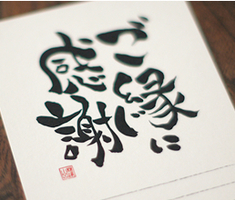 ご縁に
感謝。